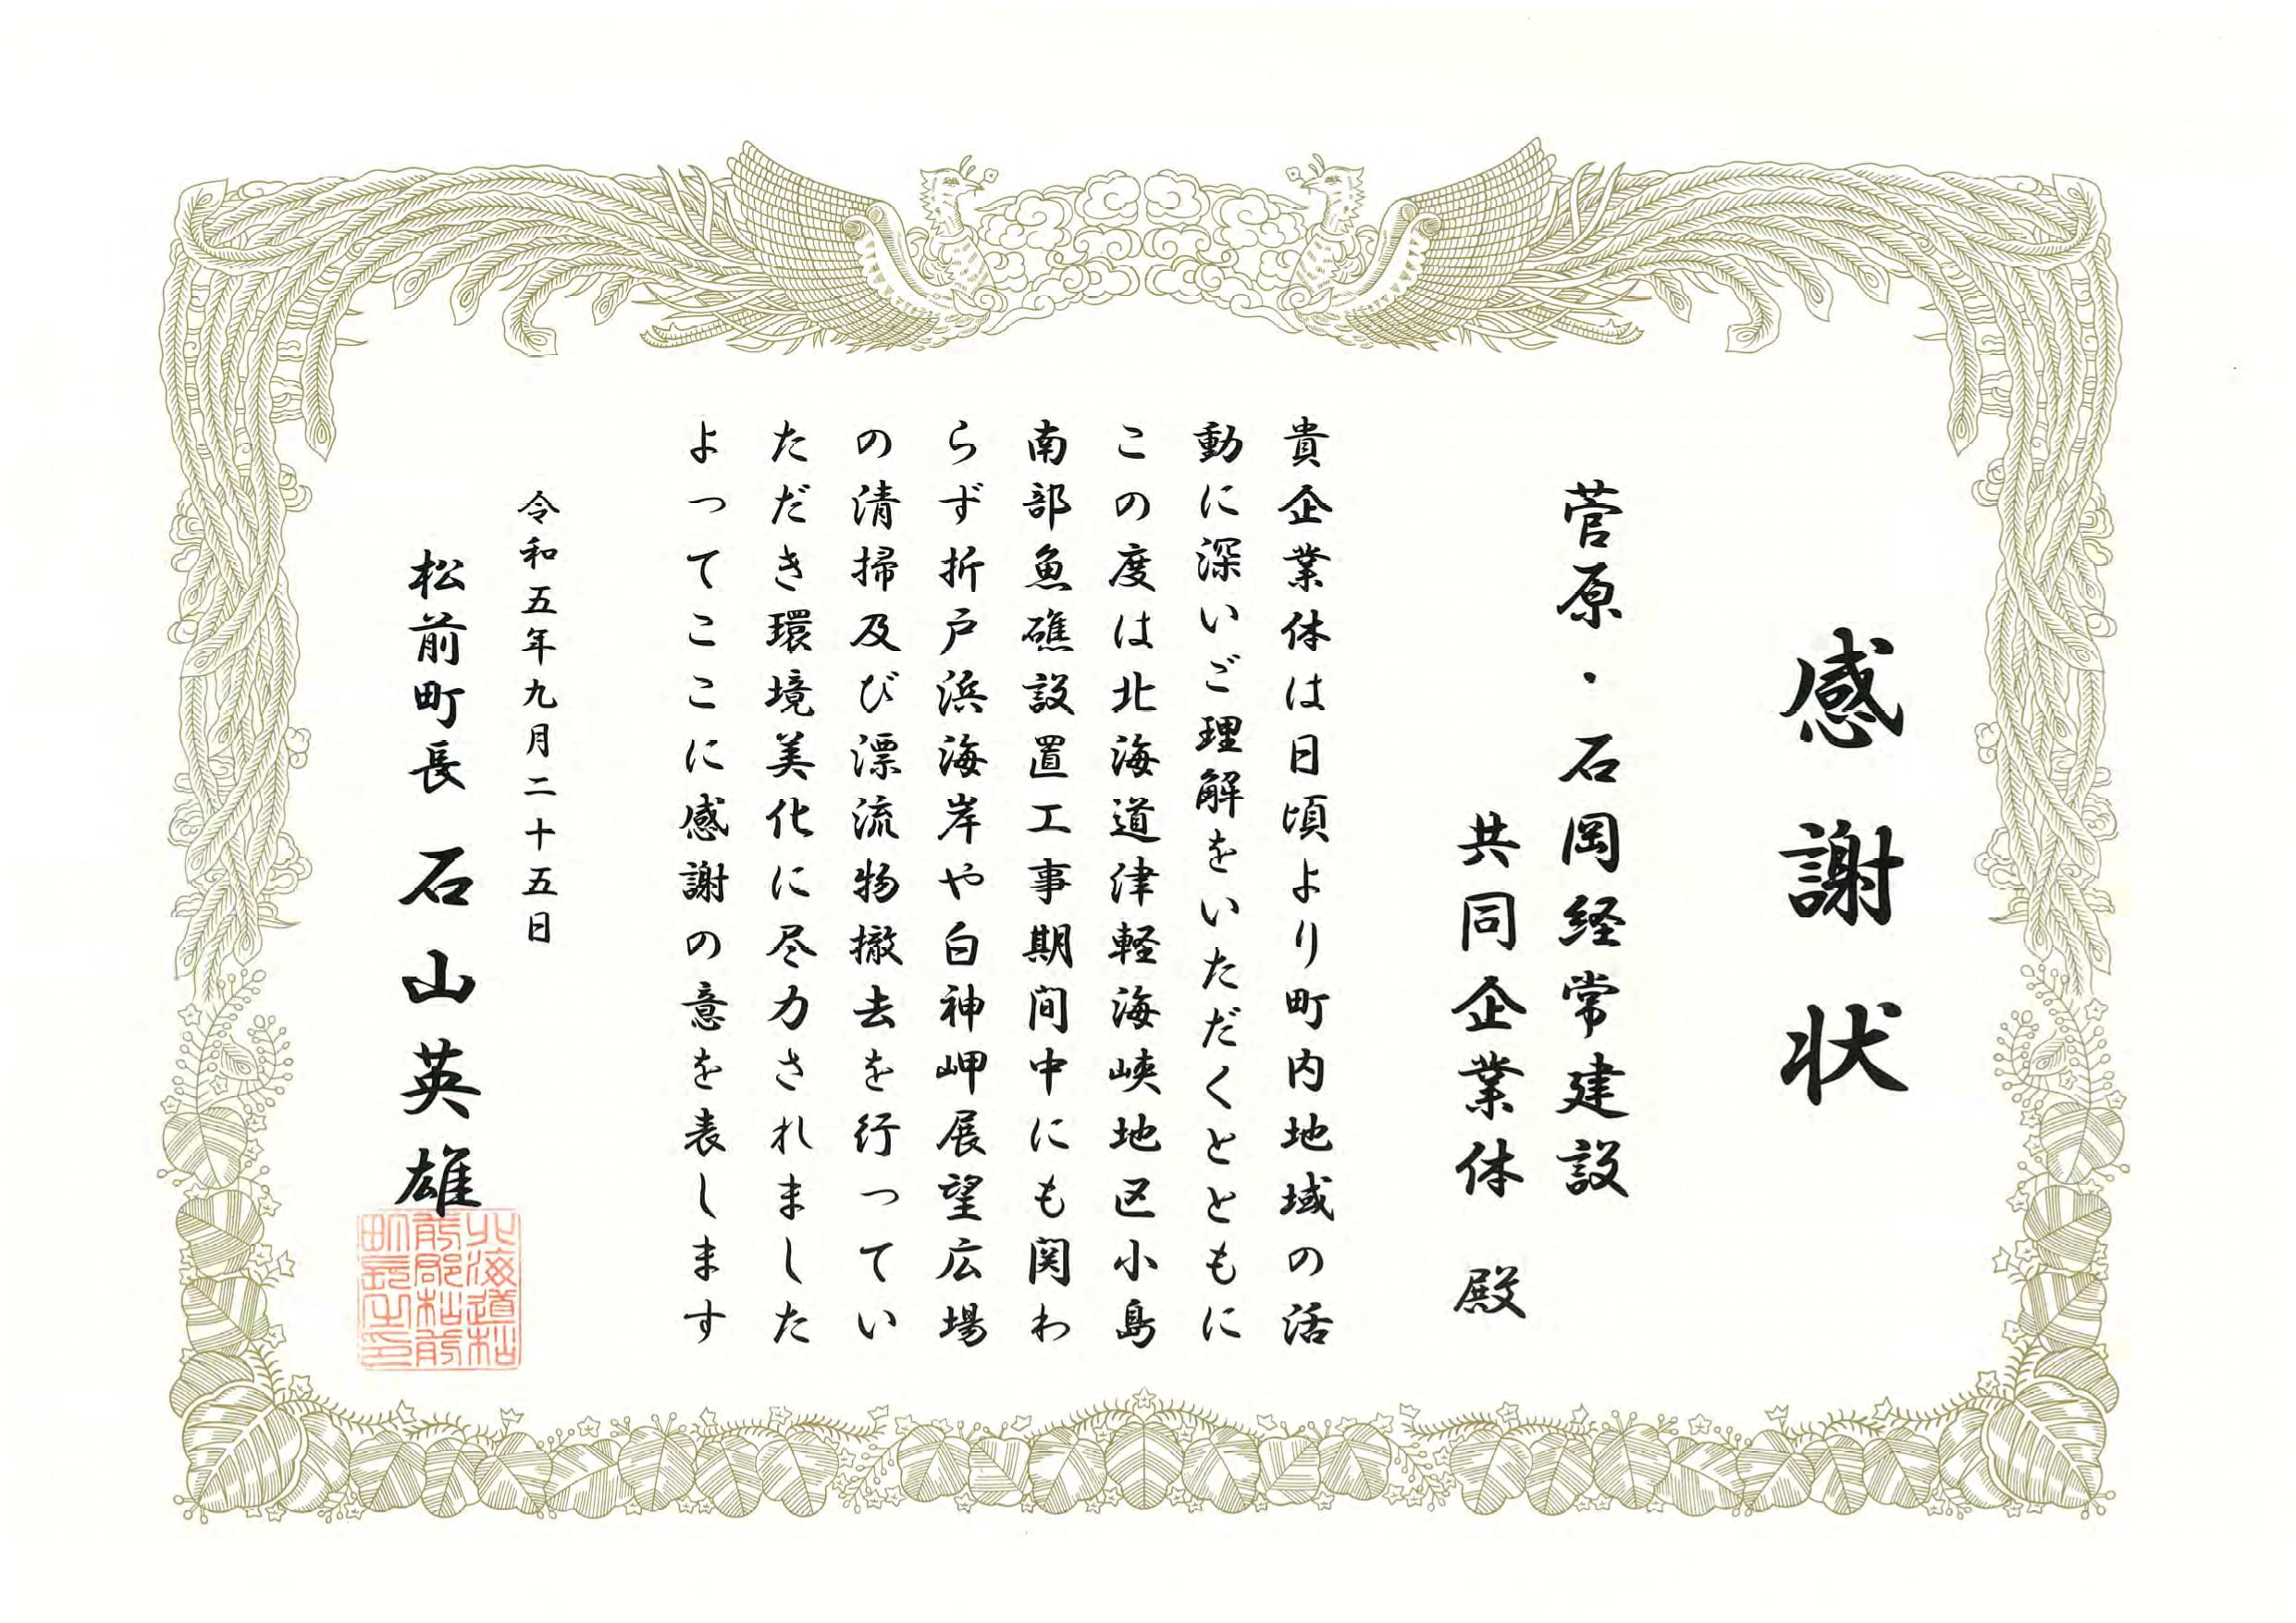 感謝状
菅原・石岡経常建設
共同企業体 殿
貴企業体は日頃より町内地域の活
動に深いご理解をいただくとともに
この度は北海道津軽海峡地区小島
南部魚礁設置工事期間中にも関わ
らず折戸浜海岸や白神岬展望広場
の清掃及び漂流物撤去を行ってい
ただき環境美化に尽力されました
よってここに感謝の意を表します
令和五年九月二十五日
松前町長 石山英雄
北海道松
前郡松前
町長之印